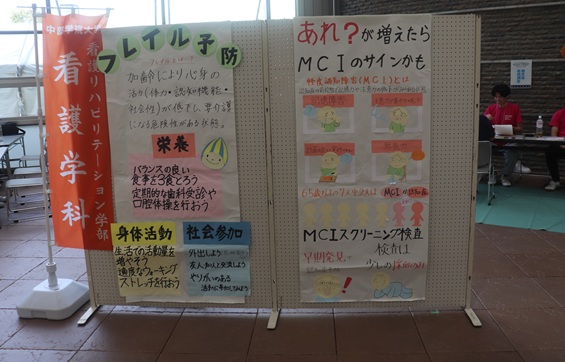 看護リハビリテーション学部
看護学科
フレイル予防
加齢により心身の
活力(体力・認知機能・
社会性)が低下し、要介護
になる危険性がある状態。
栄養
バランスの良い
食事を3食とろう
定期的な歯科受診や
口腔体操を行おう
身体活動
生活での活動量を
増やそう
適度なウォーキング
ストレッチを行おう
社会参加
外出しよう
友人、知人と交流しよう
やりがいのある
活動に参加してみよう
あれ?が増えたら
MCIのサインかも
軽度認知障害(MCI)とは
MCIスクリーニング検査
早期発見で
検査は
少しの採血のみ!